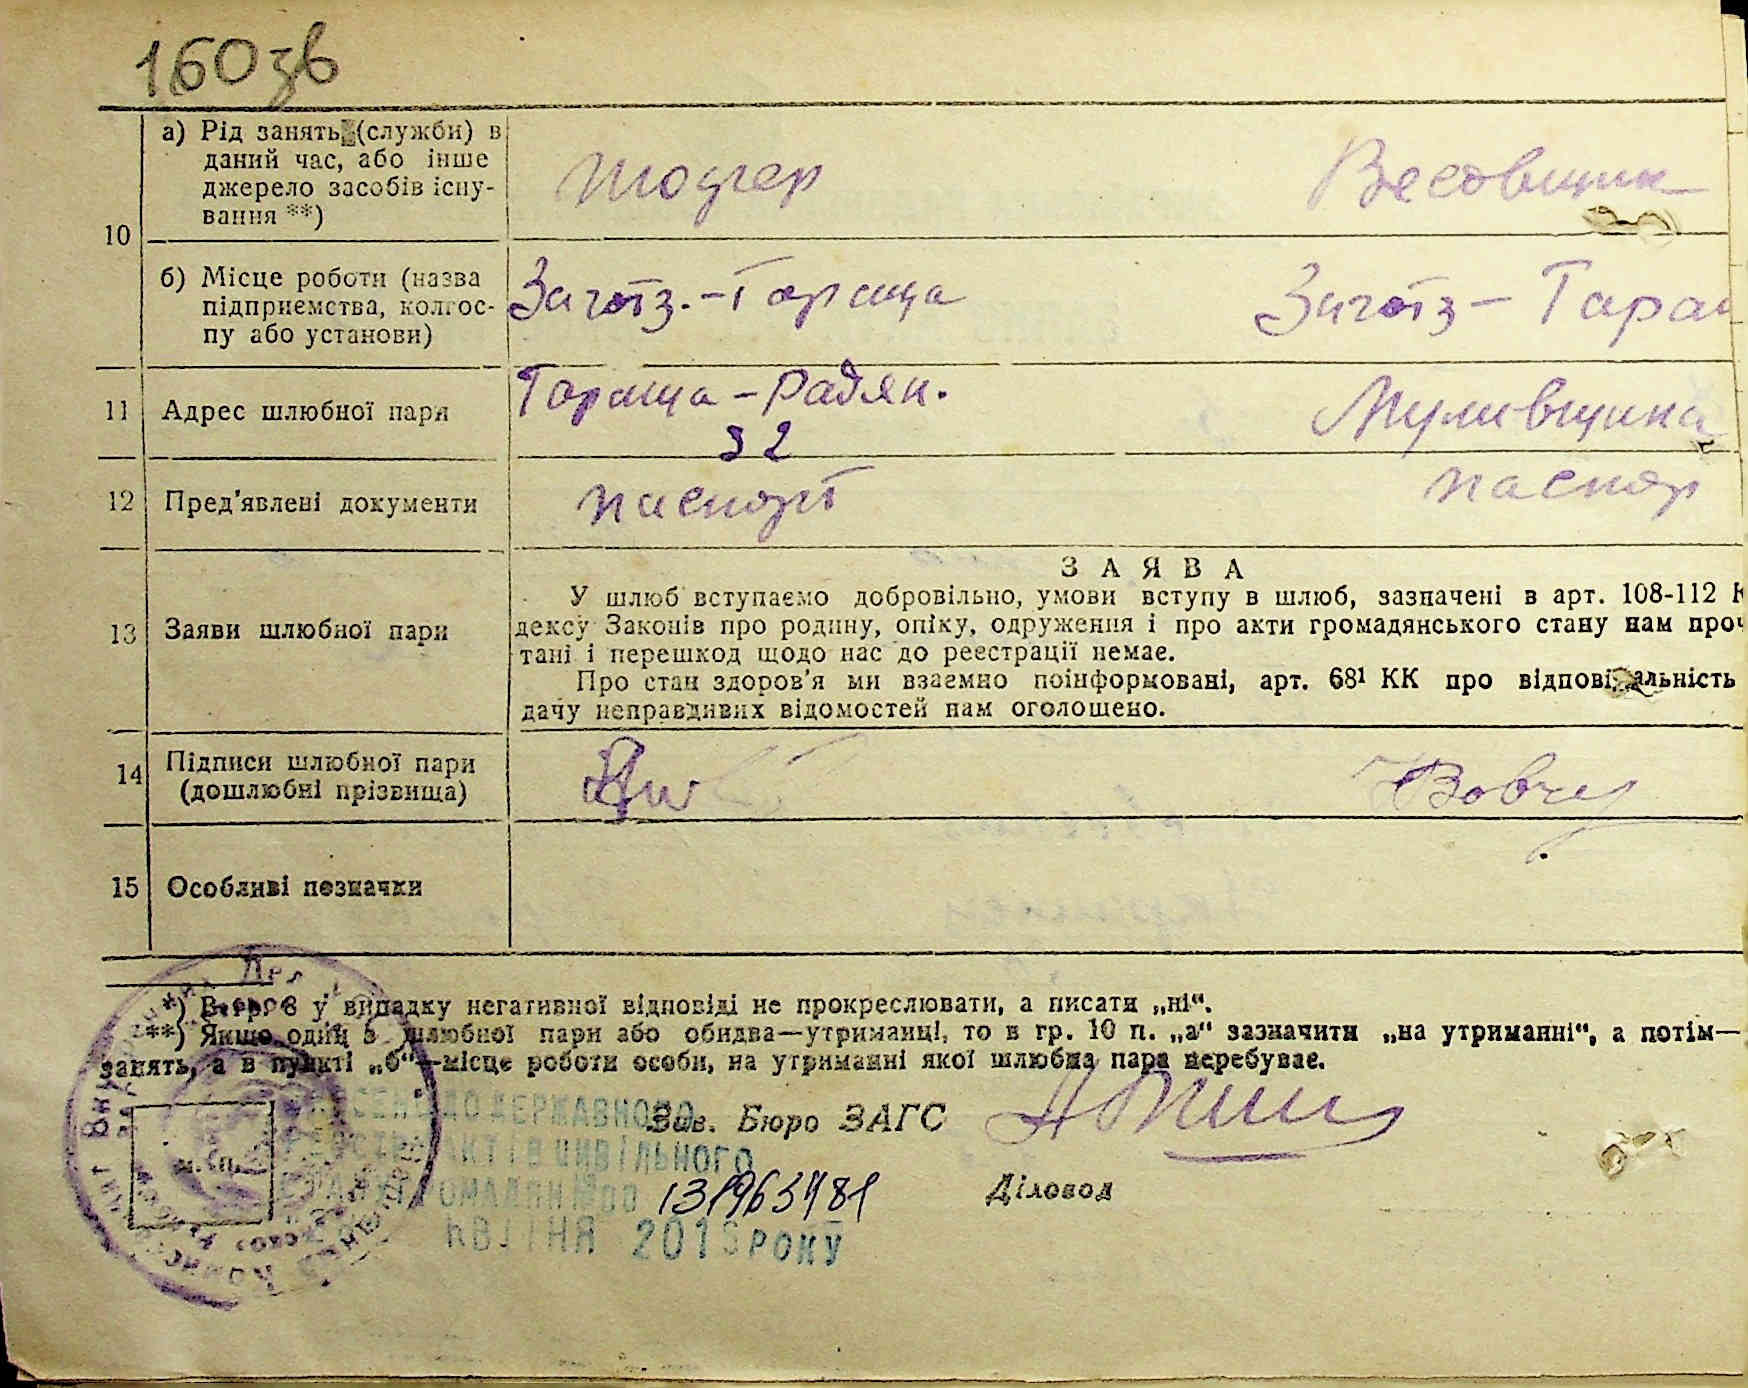 160зв
10
а) Рід занять (служби) в
даний час, або інше
джерело засобів існу-
вання **)
Весовщик
б) Місце роботи (назва
підприємства, колгос-
пу або установи)
Заготз.-Тараща
Заготз-Тара
11
Адрес шлюбної пари
Тараща-Радян.
32
12
Пред'явлені документи
паспорт
паспор
13
Заяви шлюбної пари
ЗАЯВА
У шлюб вступаємо добровільно, умови вступу в шлюб, зазначені в арт. 108-112 К
дексу Законів про родину, опіку, одруження і про акти громадянського стану нам проч
тані і перешкод щодо нас до реєстрації немає.
Про стан здоров'я ми взаємно поінформовані, арт. 68¹ КК про відповідальність
дачу неправдивих відомостей нам оголошено.
14
Підписи шлюбної пари
(дошлюбні прізвища)
15
Особливі позначки
*) В гр. 8 у випадку негативної відповіді не прокреслювати, а писати „ні“.
**) Якщо один з шлюбної пари або обидва—утриманці, то в гр. 10 п. „а“ зазначити „на утриманні“, а потім—
занять, а в пункті „б“—місце роботи особи, на утриманні якої шлюбна пара перебуває.
ДО ДЕРЖАВНОГО
АКТІВ ЦИВІЛЬНОГО
Зав. Бюро ЗАГС
Діловод
РОКУ